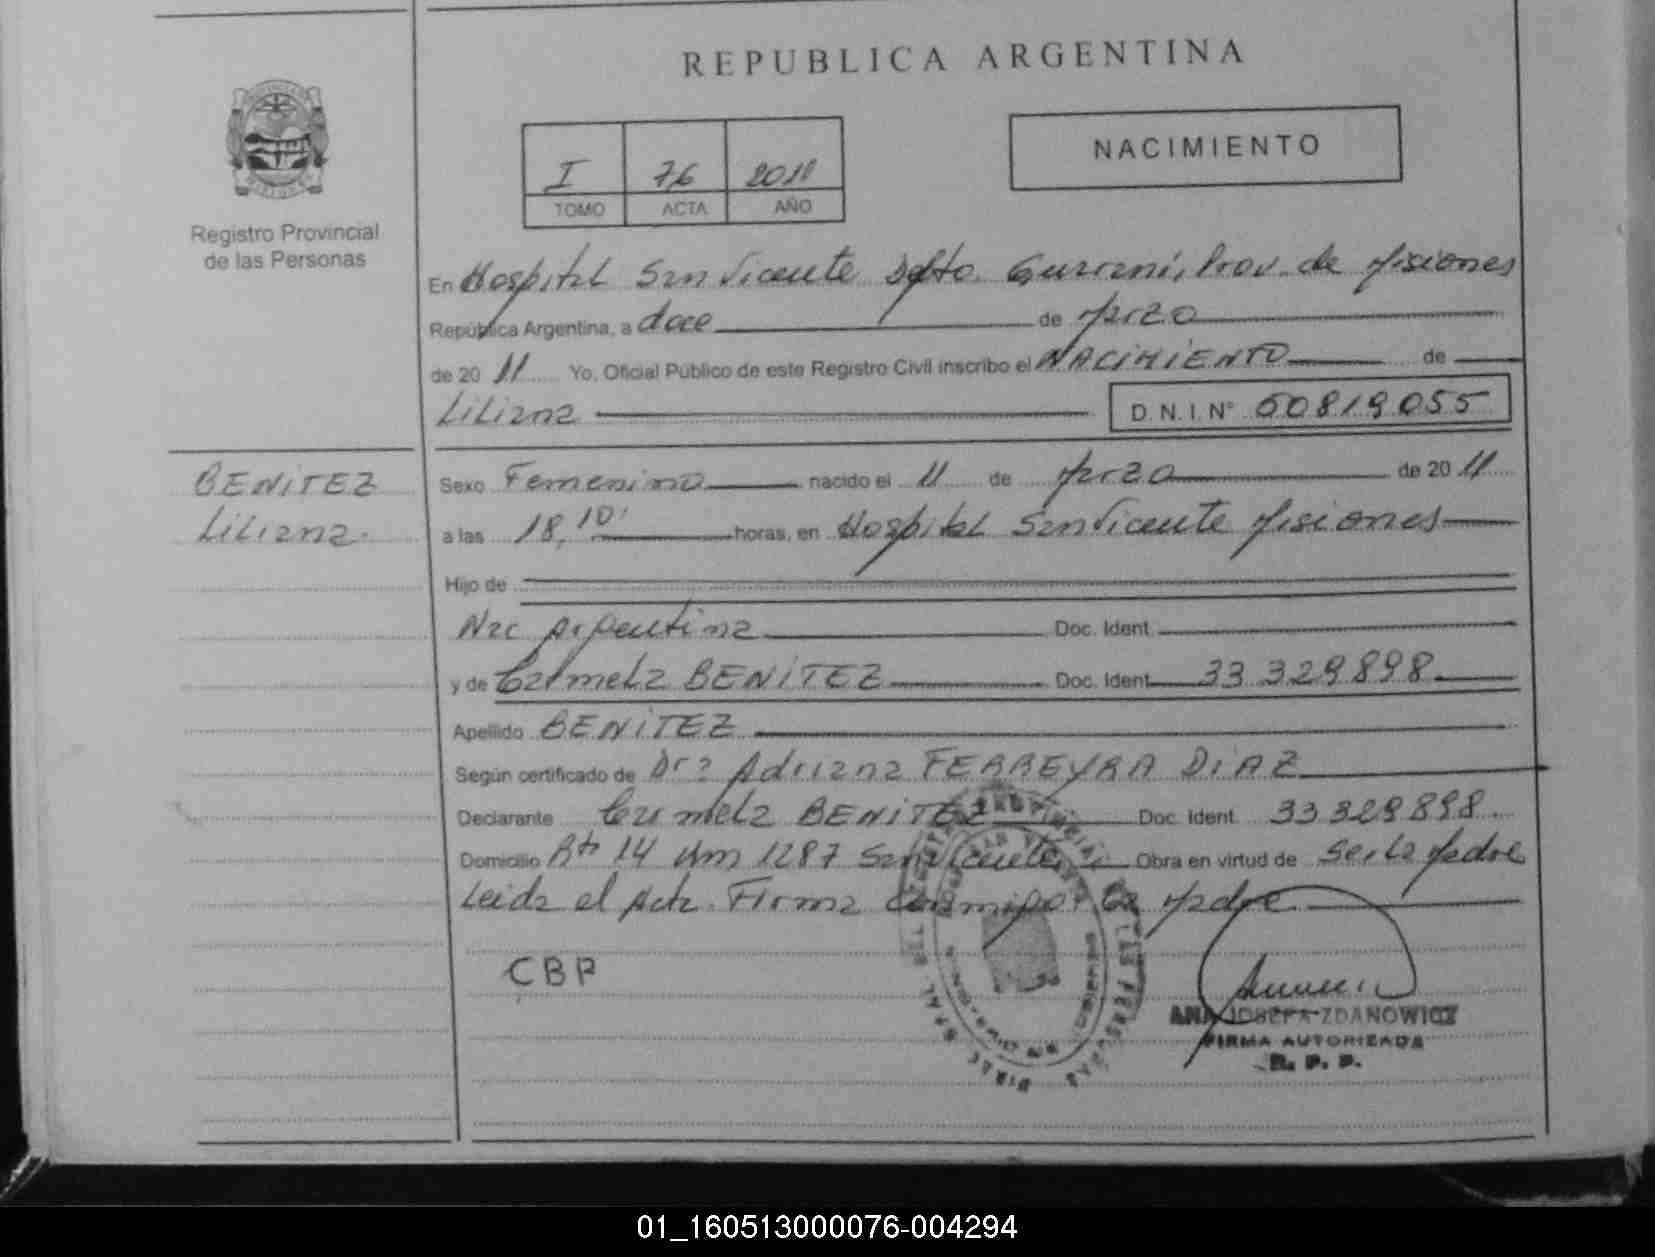 REPUBLICA ARGENTINA
NACIMIENTO
I 76 2011
TOMO ACTA AÑO
Registro Provincial
de las Personas
En Hospital San Vicente Dpto. Guarani, Prov. de Misiones
República Argentina, a doce de Marzo
de 20 11 Yo, Oficial Público de este Registro Civil inscribo el NACIMIENTO de
Liliana D. N. I. N° 50819055
BENITEZ
Liliana.
Sexo Femenino nacido el 11 de Marzo de 20 11
a las 18,10' horas, en Hospital San Vicente Misiones
Hijo de
Nac Argentina Doc. Ident.
y de Carmela BENITEZ Doc. Ident. 33 329 898
Apellido BENITEZ
Según certificado de Dra Adriana FERREYRA DIAZ
Declarante Carmela BENITEZ Doc. Ident. 33 329 898
Domicilio Rta 14 Km 1287 San Vicente Obra en virtud de ser la Madre
Leida el Acta Firma Conmigo la Madre
CBP
ANA JOSEFA ZDANOWICZ
FIRMA AUTORIZADA
R. P. P.
01_160513000076-004294